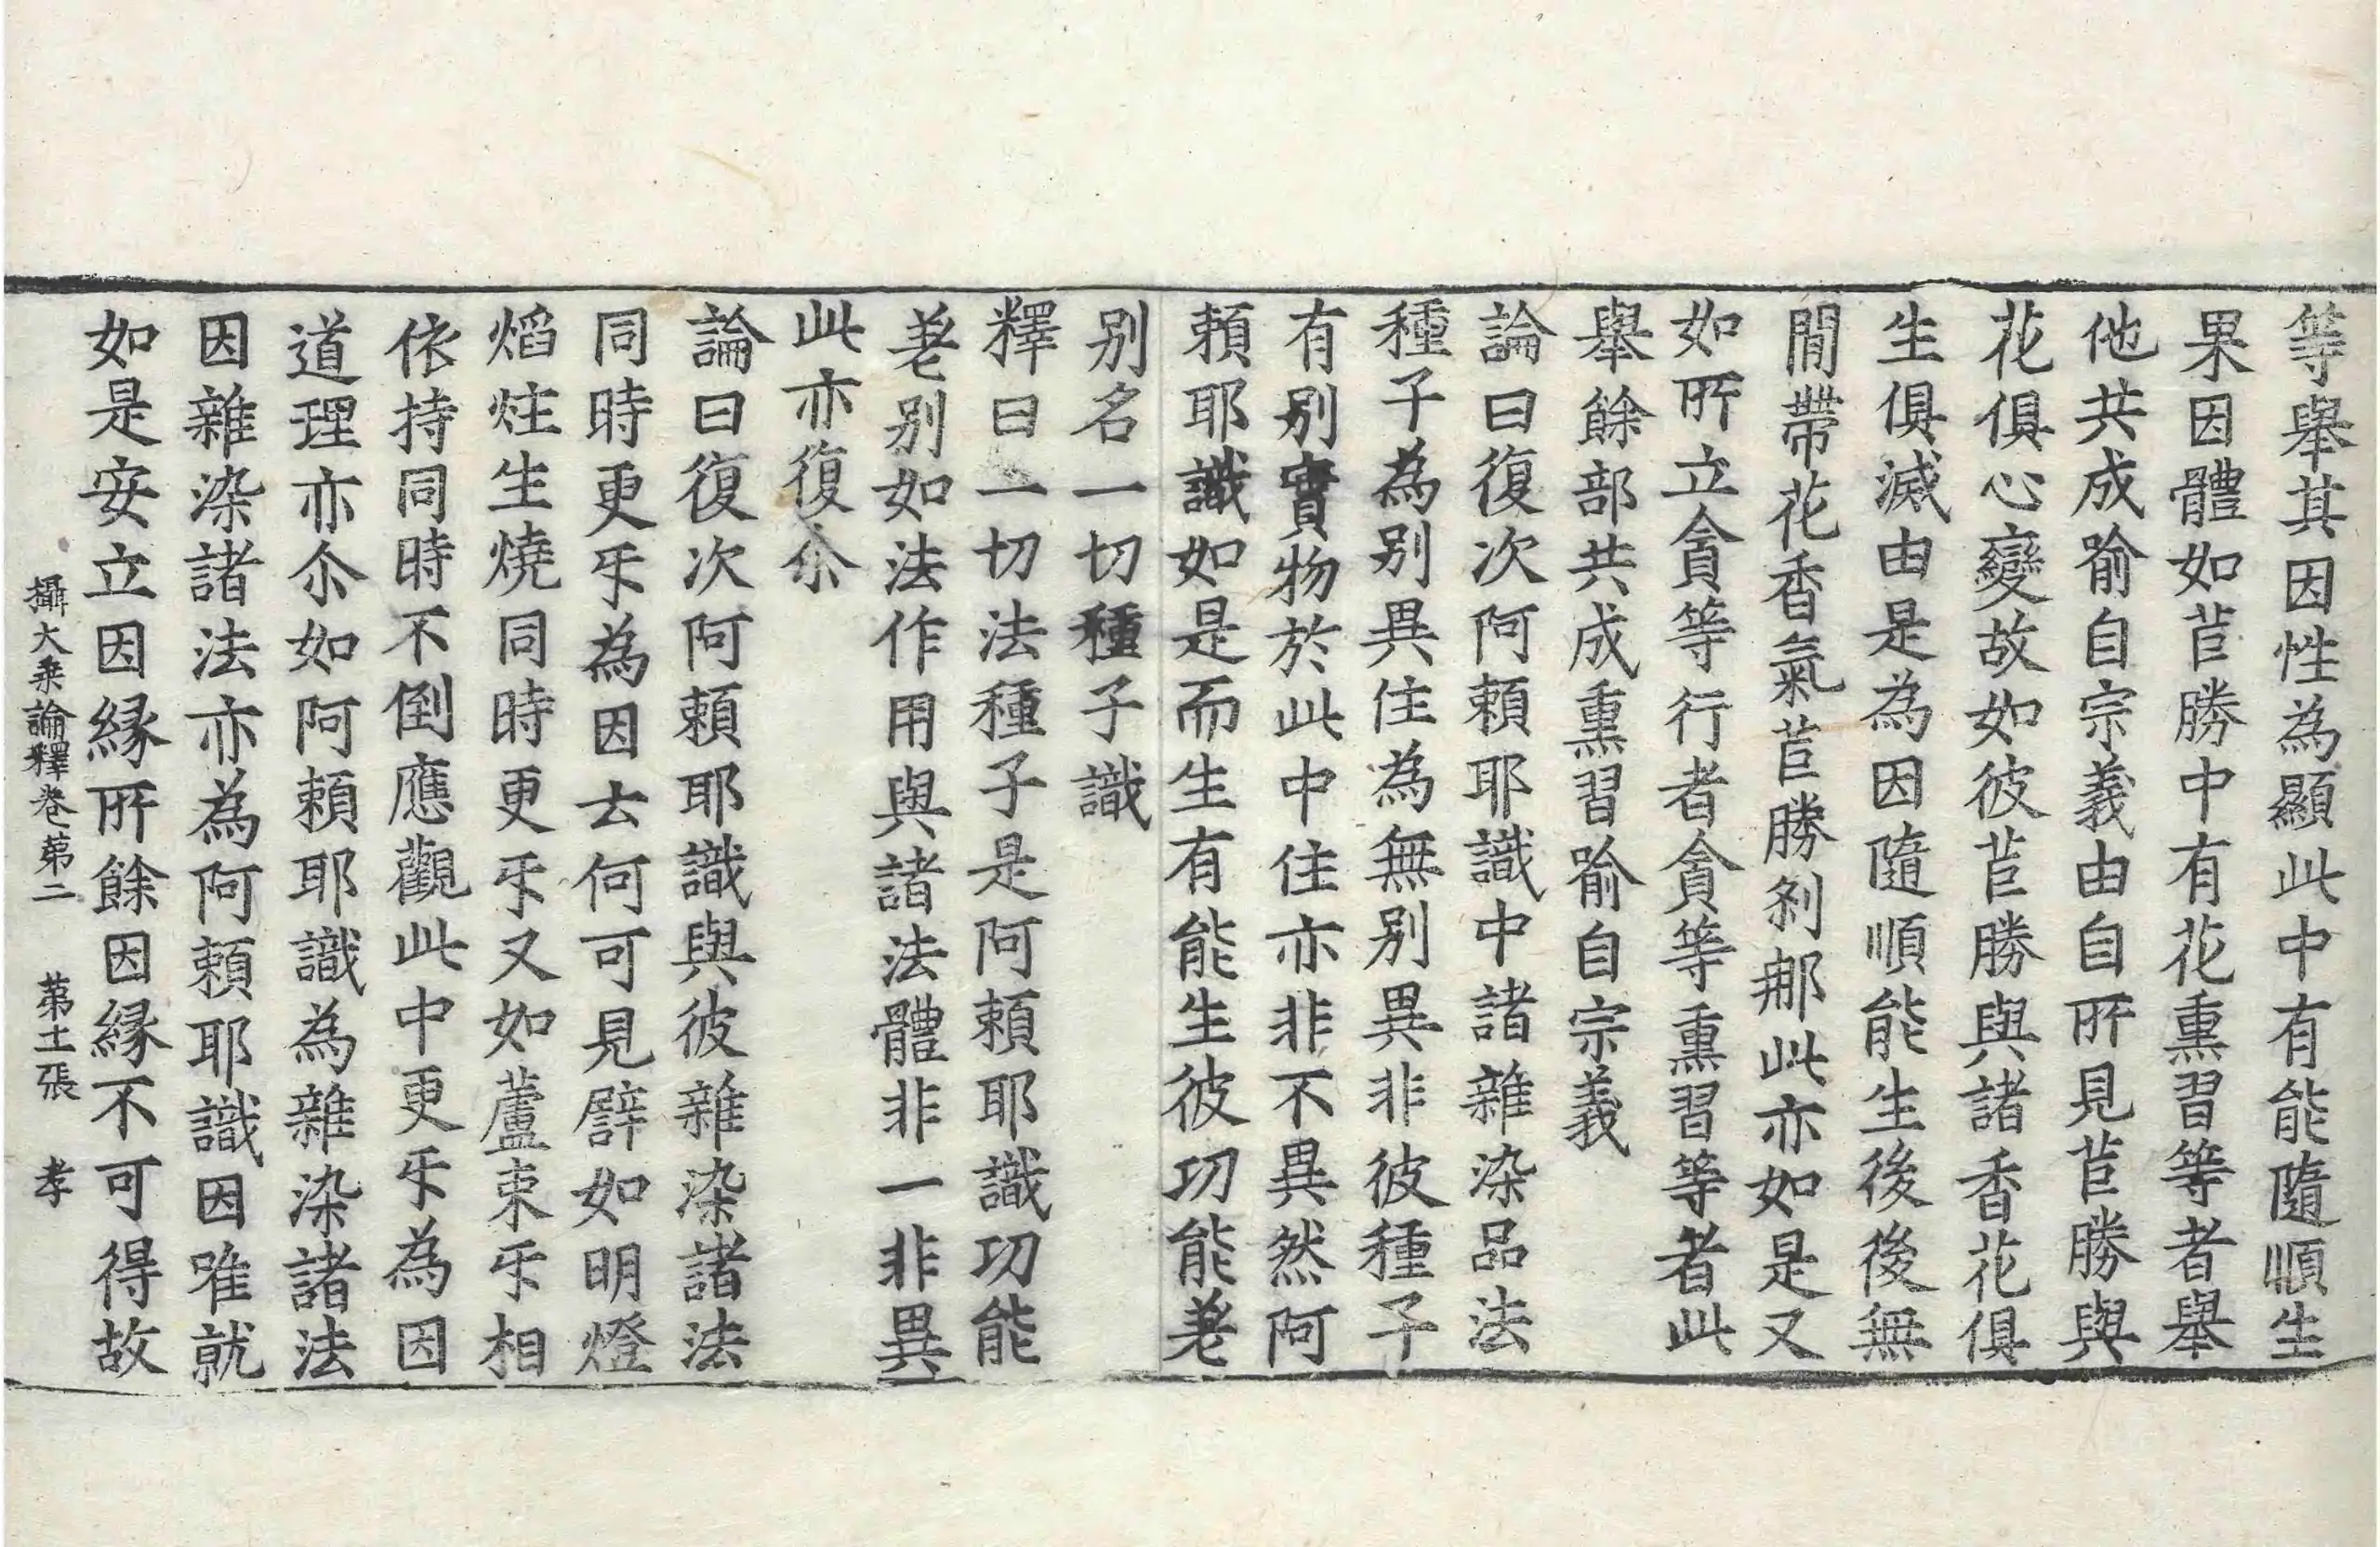 等舉其因性為顯此中有能隨順生
果因體如苣勝中有花熏習等者舉
他共成喻自宗義由自所見苣勝與
花俱心變故如彼苣勝與諸香花俱
生俱滅由是為因隨順能生後後無
間帶花香氣苣勝剎那此亦如是又
如所立貪等行者貪等熏習等者此
舉餘部共成熏習喻自宗義
論曰復次阿賴耶識中諸雜染品法
種子為别異住為無别異非彼種子
有别實物於此中住亦非不異然阿
賴耶識如是而生有能生彼功能差
别名一切種子識
釋曰一切法種子是阿賴耶識功能
差别如法作用與諸法體非一非異
此亦復尒
論曰復次阿賴耶識與彼雜染諸法
同時更㸦為因云何可見譬如明燈
焰炷生燒同時更㸦又如蘆束㸦相
依持同時不倒應觀此中更㸦為因
道理亦尒如阿賴耶識為雜染諸法
因雜染諸法亦為阿賴耶識因唯就
如是安立因縁所餘因縁不可得故
攝大乗論釋卷第二 第十一張 孝